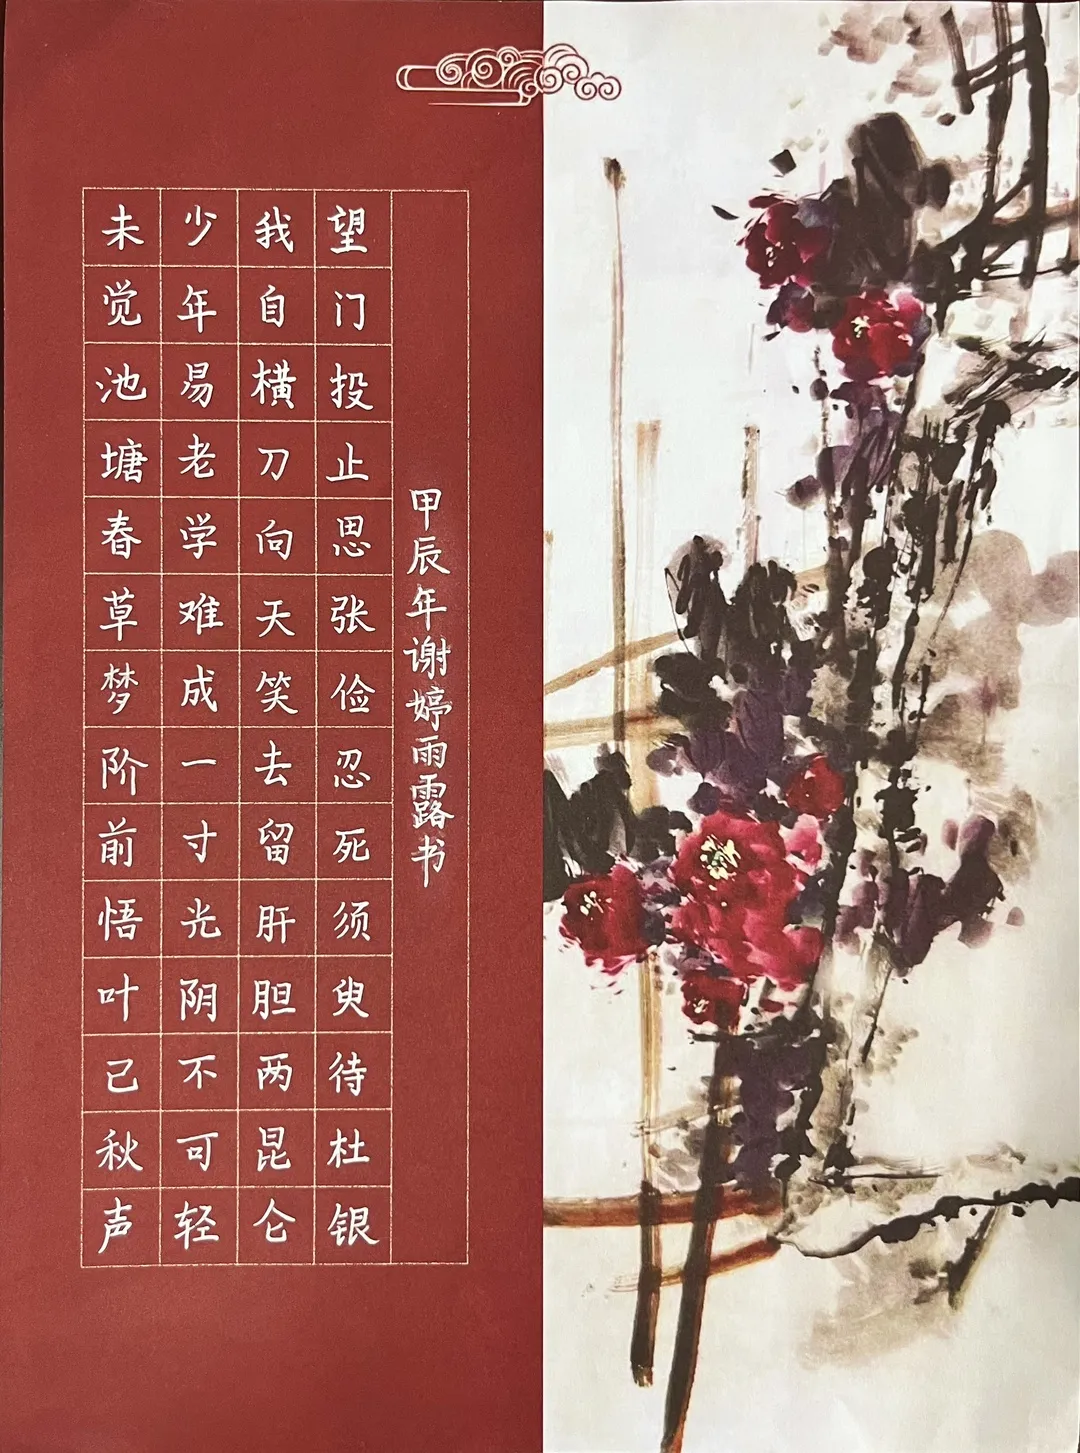 甲辰年谢婷雨露书
望门投止思张俭忍死须臾待杜银
我自横刀向天笑去留肝胆两昆仑
少年易老学难成一寸光阴不可轻
未觉池塘春草梦阶前悟叶已秋声